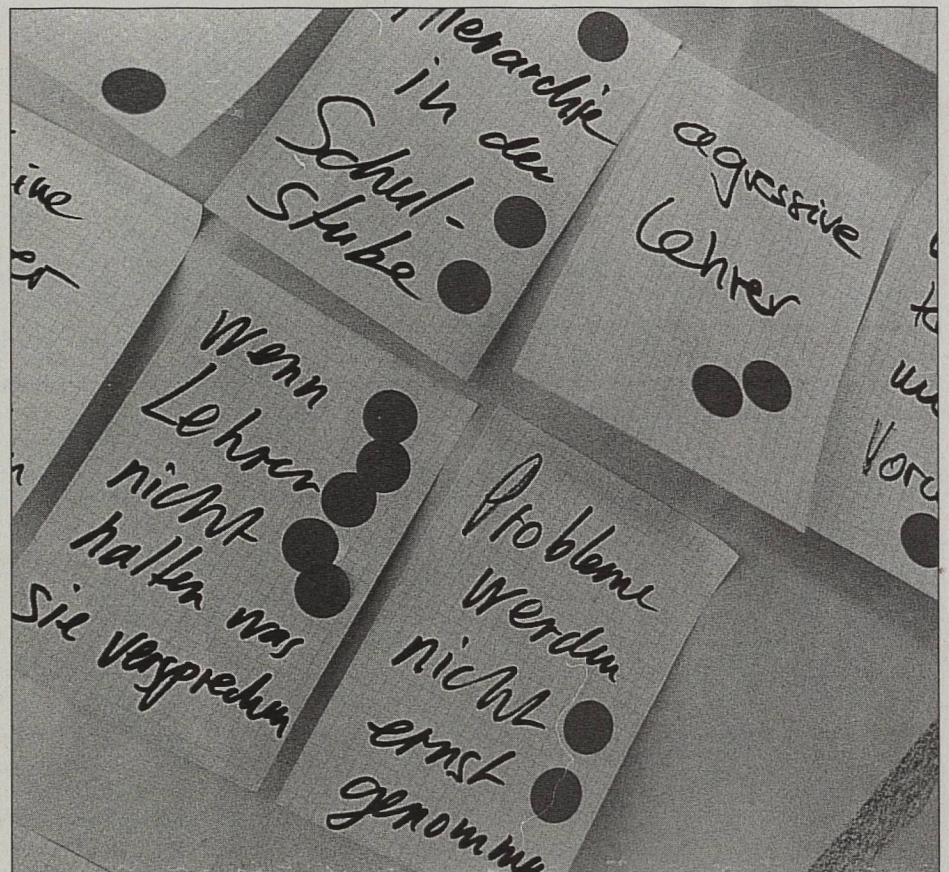 Hierarchie
in der
Schul-
stube
agressive
Lehrer
ine
er
Wenn
Lehrer
nicht
halten was
sie versprechen
Probleme
werden
nicht
ernst
genomme